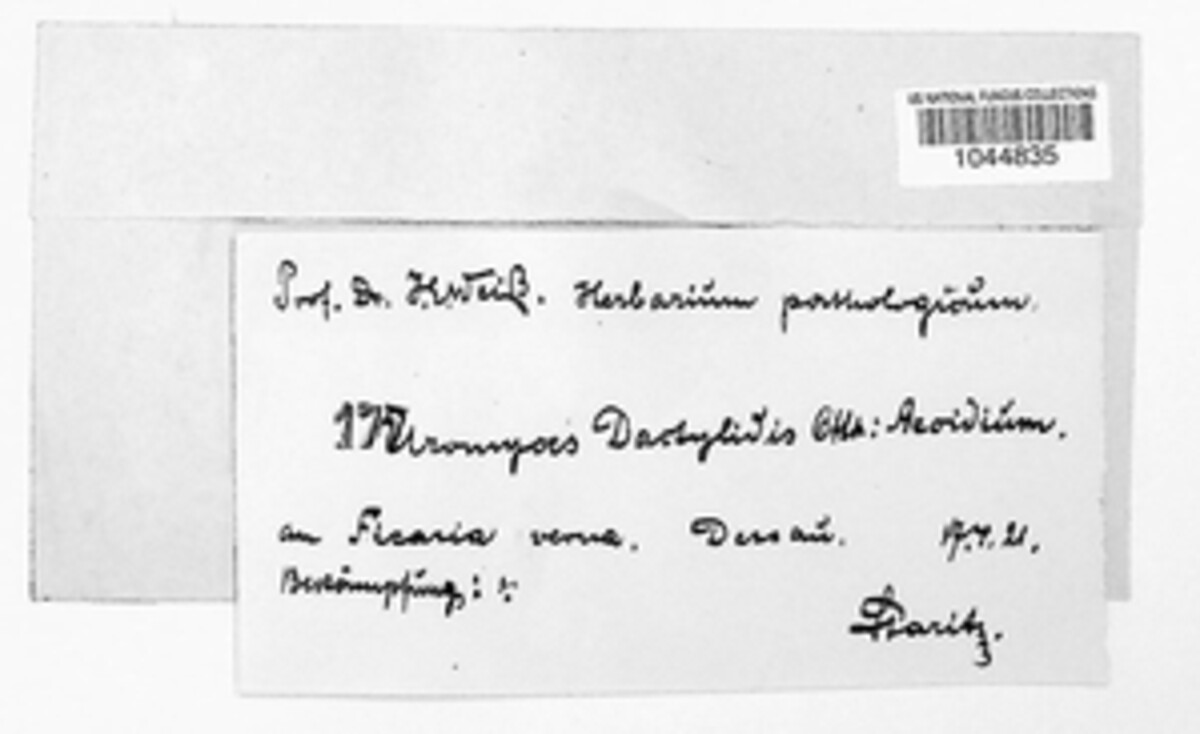 US NATIONAL FUNGUS COLLECTIONS
1044835
Prof. Dr. Weiß. Herbarium pathologicum.
Uromyces Dactylidis Otth: Aecidium.
an Ficaria verna. Dessau. 17.4.21.
Bekämpfung:
Staritz.